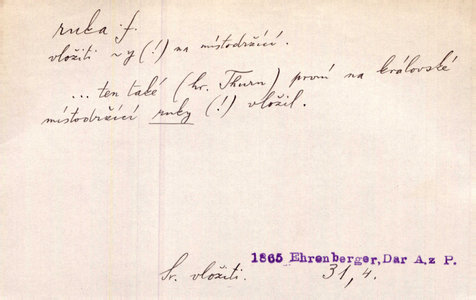 ruka f.
vložiti ~y (!) na místodržící.
... ten také (hr. Thurn) první na královské
místodržící ruky (!) vložil.
1865 Ehrenberger, Dar A. z P.
Sr. vložiti. 31, 4.